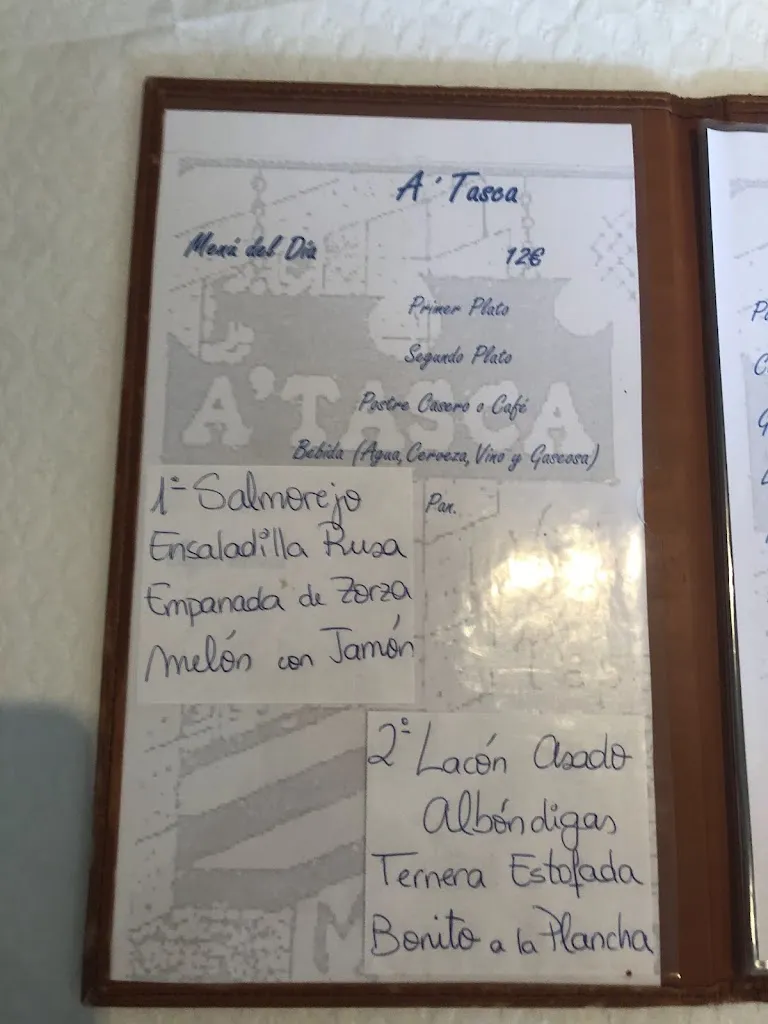 A' Tasca
Menú del Día 12€
Primer Plato
Segundo Plato
Postre Casero o Café
A'TASCA
Bebida (Agua, Cerveza, Vino y Gaseosa)
Pan.
1º Salmorejo
Ensaladilla Rusa
Empanada de Zorza
Melón con Jamón
2º Lacón Asado
Albóndigas
Ternera Estofada
Bonito a la Plancha